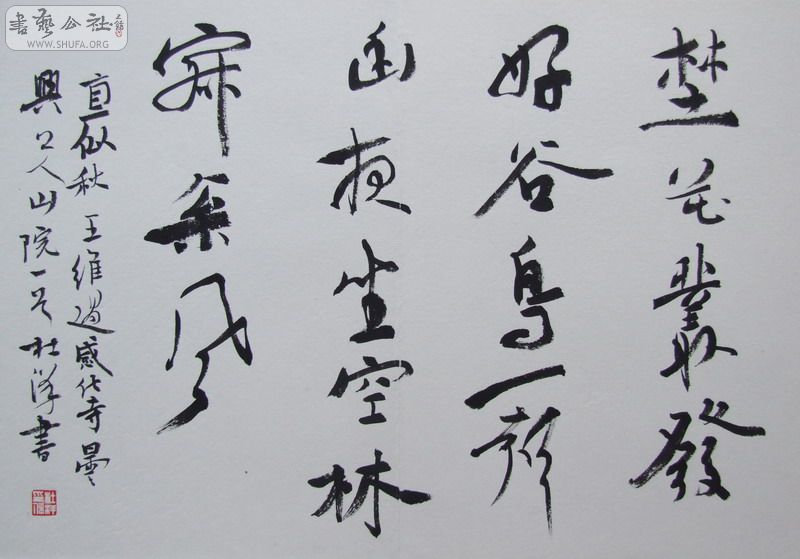 書藝公社
WWW.SHUFA.ORG
埜花叢發
好谷鳥一聲
幽夜坐空林
寂枀風
直似秋 王維過感化寺曇
興上人山院一首 杜書